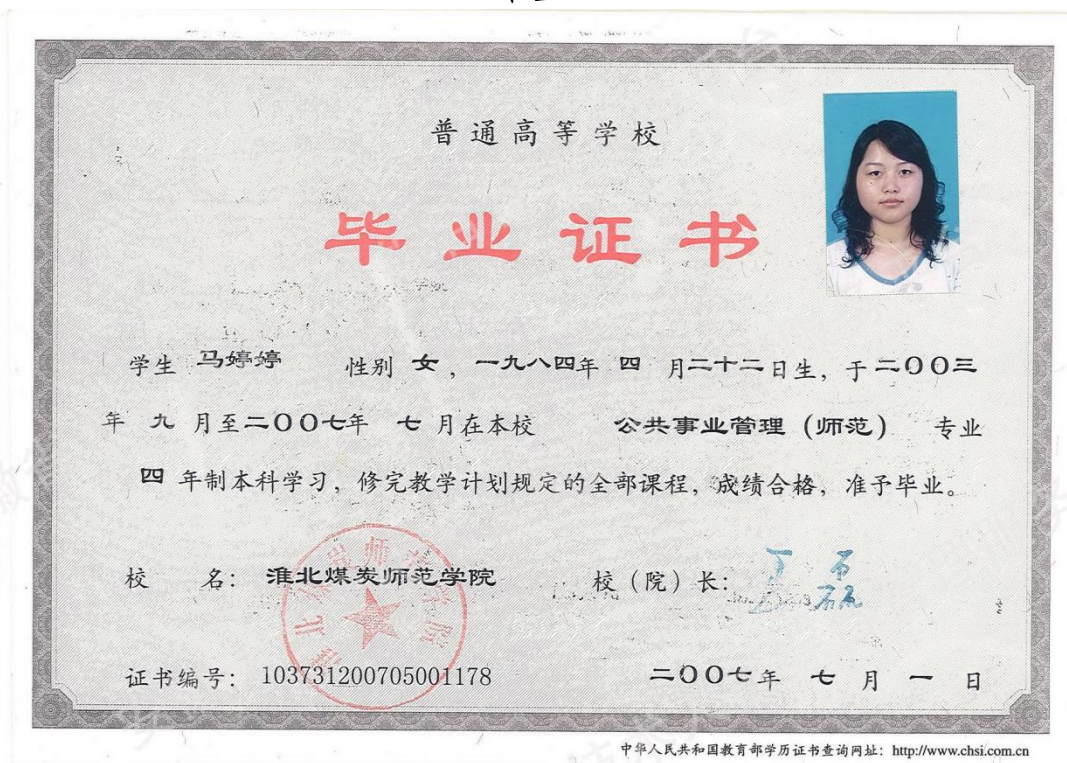 普通高等学校
毕业证书
学生 马婷婷 性别 女，一九八四年 四 月二十二日生，于二〇〇三
年 九 月至二〇〇七年 七 月在本校 公共事业管理（师范） 专业
四 年制本科学习，修完教学计划规定的全部课程，成绩合格，准予毕业。
校 名： 淮北煤炭师范学院 校（院）长： 丁磊
证书编号： 103731200705001178 二〇〇七年 七 月 一 日
中华人民共和国教育部学历证书查询网址： http://www.chsi.com.cn